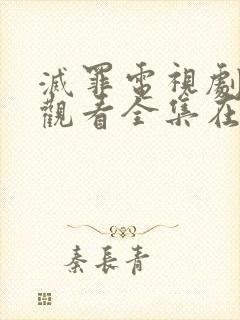 滅罪電視劇
觀看全集在
秦長青